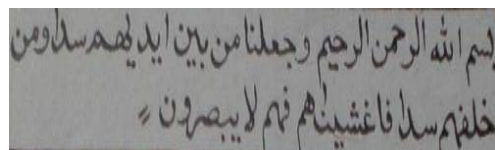 بسم الله الرحمن الرحيم وجعلنا من بين ايديهم سدا ومن
خلفهم سدا فاغشيناهم فهم لا يبصرون